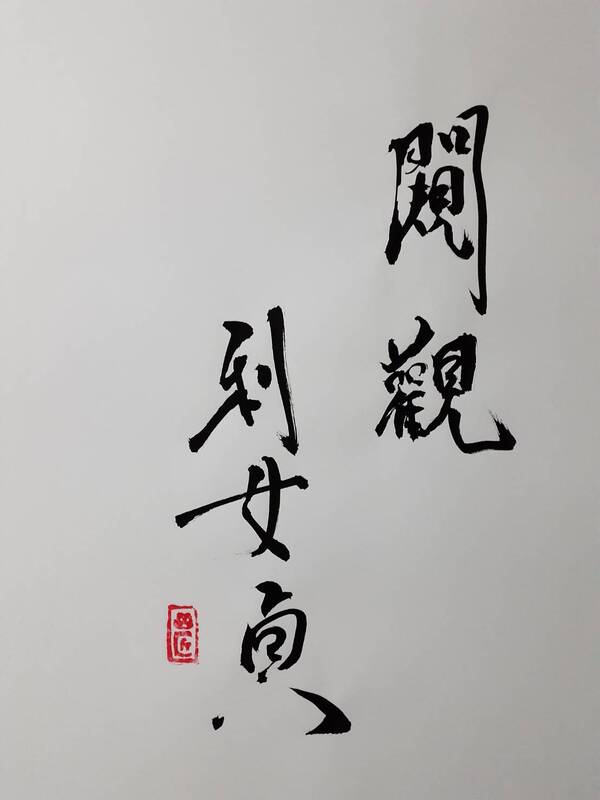 闚觀
利女貞